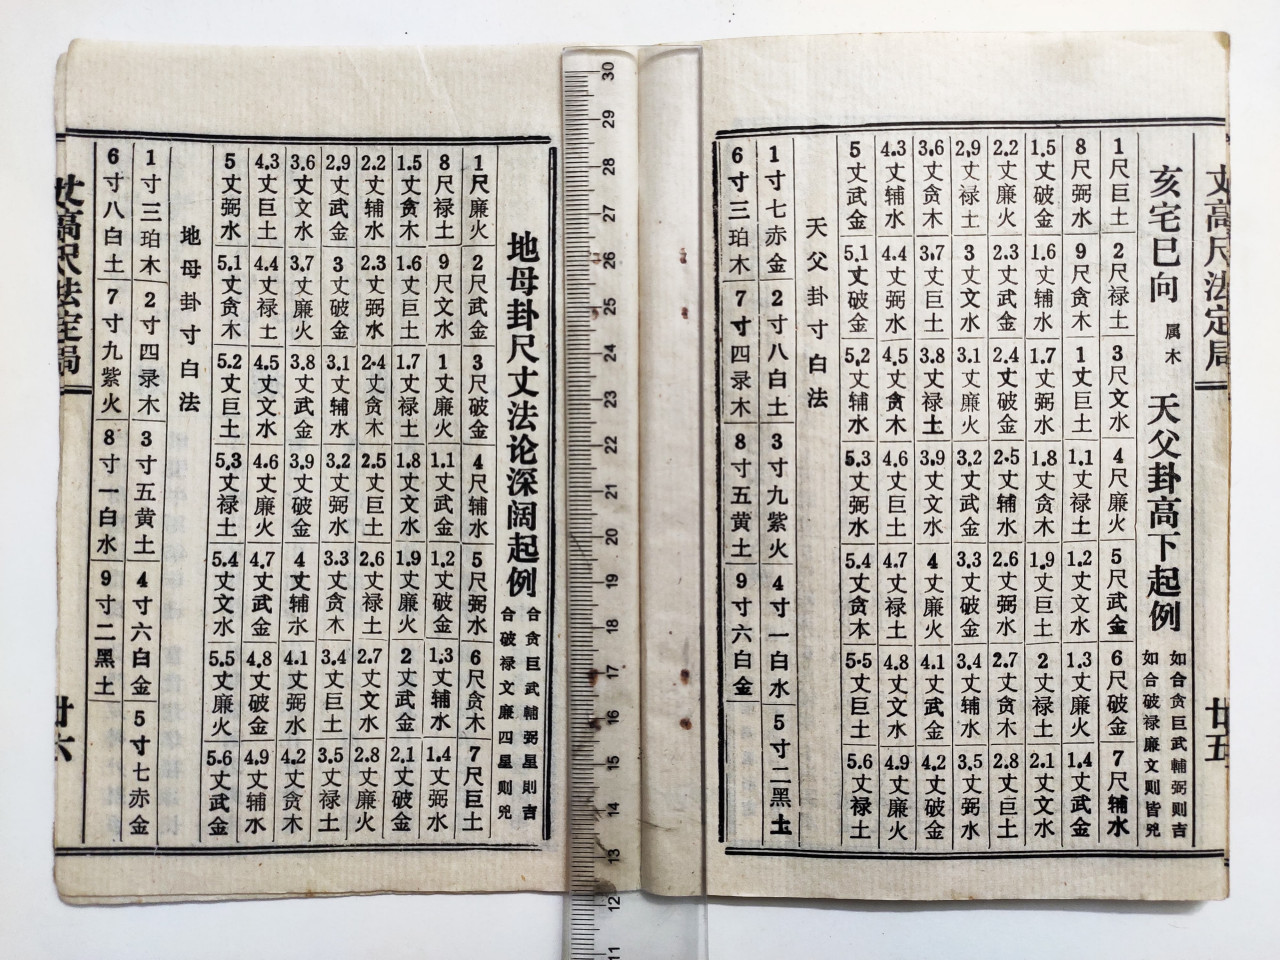 丈高尺法定局 廿五
亥宅巳向 属木 天父卦高下起例
如合贪巨武輔弼则吉
如合破禄廉文则皆兇
1尺巨土 2尺禄土 3尺文水 4尺廉火 5尺武金 6尺破金 7尺辅水
8尺弼水 9尺贪木 1丈巨土 1.1丈禄土 1.2丈文水 1.3丈廉火 1.4丈武金
1.5丈破金 1.6丈辅水 1.7丈弼水 1.8丈贪木 1.9丈巨土 2丈禄土 2.1丈文水
2.2丈廉火 2.3丈武金 2.4丈破金 2.5丈辅水 2.6丈弼水 2.7丈贪木 2.8丈巨土
2.9丈禄土 3丈文水 3.1丈廉火 3.2丈武金 3.3丈破金 3.4丈辅水 3.5丈弼水
3.6丈贪木 3.7丈巨土 3.8丈禄土 3.9丈文水 4丈廉火 4.1丈武金 4.2丈破金
4.3丈辅水 4.4丈弼水 4.5丈贪木 4.6丈巨土 4.7丈禄土 4.8丈文水 4.9丈廉火
5丈武金 5.1丈破金 5.2丈辅水 5.3丈弼水 5.4丈贪本 5.5丈巨土 5.6丈禄土
天父卦寸白法
1寸七赤金 2寸八白土 3寸九紫火 4寸一白水 5寸二黑土
6寸三珀木 7寸四录木 8寸五黄土 9寸六白金
30
29
28
27
26
25
24
23
22
21
20
19
18
17
16
15
14
13
12
11
地母卦尺丈法论深阔起例
合贪巨武輔弼星则吉
合破禄文廉四星则兇
1尺廉火 2尺武金 3尺破金 4尺辅水 5尺弼水 6尺贪木 7尺巨土
8尺禄土 9尺文水 1丈廉火 1.1丈武金 1.2丈破金 1.3丈辅水 1.4丈弼水
1.5丈贪木 1.6丈巨土 1.7丈禄土 1.8丈文水 1.9丈廉火 2丈武金 2.1丈破金
2.2丈辅水 2.3丈弼水 2.4丈贪木 2.5丈巨土 2.6丈禄土 2.7丈文水 2.8丈廉火
2.9丈武金 3丈破金 3.1丈辅水 3.2丈弼水 3.3丈贪木 3.4丈巨土 3.5丈禄土
3.6丈文水 3.7丈廉火 3.8丈武金 3.9丈破金 4丈辅水 4.1丈弼水 4.2丈贪木
4.3丈巨土 4.4丈禄土 4.5丈文水 4.6丈廉火 4.7丈武金 4.8丈破金 4.9丈辅水
5丈弼水 5.1丈贪木 5.2丈巨土 5.3丈禄土 5.4丈文水 5.5丈廉火 5.6丈武金
地母卦寸白法
1寸三珀木 2寸四录木 3寸五黄土 4寸六白金 5寸七赤金
6寸八白土 7寸九紫火 8寸一白水 9寸二黑土
丈高尺法定局 廿六